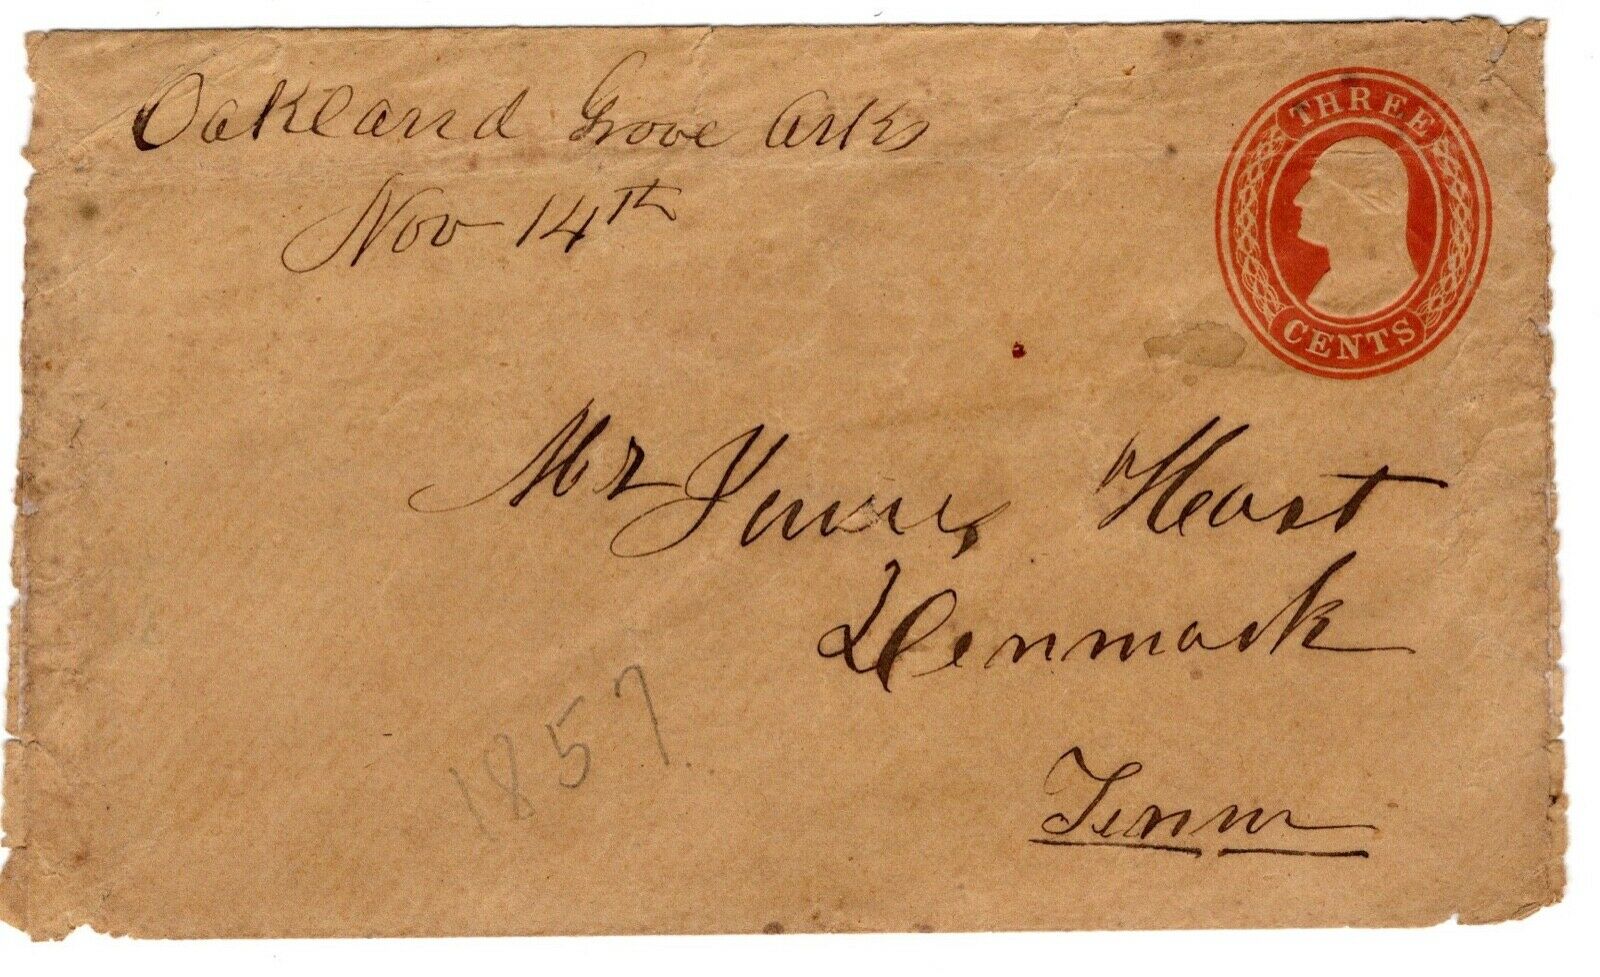 Oakland Grove Arks
Nov 14th
THREE
CENTS
Mr
Denmark
Tenn
1857